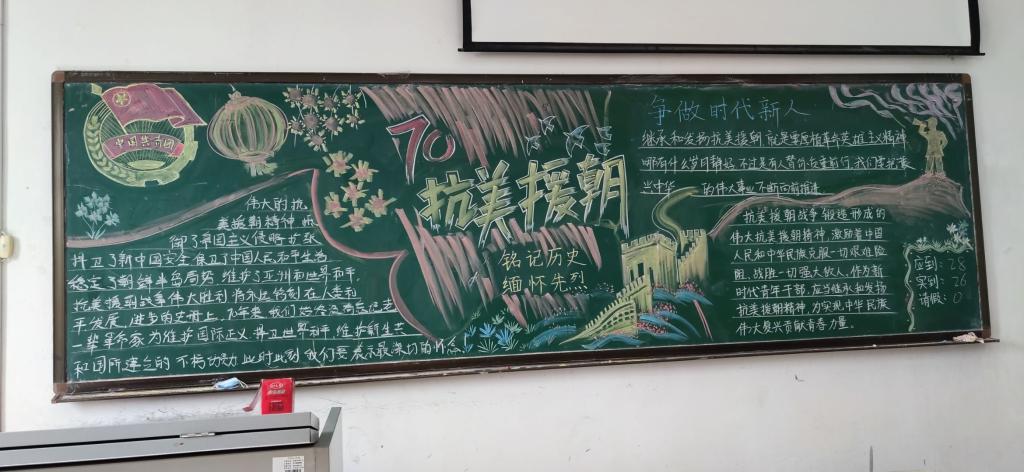 中国共青团
70
抗美援朝
铭记历史
缅怀先烈
伟大的抗
美援朝精神 抵
御了帝国主义侵略扩张
捍卫了新中国安全 保卫了中国人民和平生活
稳定了朝鲜半岛局势 维护了亚洲和世界和平。
抗美援朝战争伟大胜利 将永远铭刻在人类和
平发展、进步的史册上。70年来 我们始终没有忘记老
一辈革命家为维护国际正义 捍卫世界和平 维护新生共
和国所建立的不朽功勋 此时此刻 我们要表示最深切的怀念
争做时代新人
继承和发扬抗美援朝 就是要厚植革命英雄主义精神
哪有什么岁月静好 不过是有人替你负重前行 我们要把振
兴中华 的伟大事业不断向前推进
抗美援朝战争锻造形成的
伟大抗美援朝精神，激励着中国
人民和中华民族克服一切艰难险
阻、战胜一切强大敌人。作为新
时代青年干部，应当继承和发扬
抗美援朝精神，为实现中华民族
伟大复兴贡献青春力量。
应到：28
实到：26
请假：0